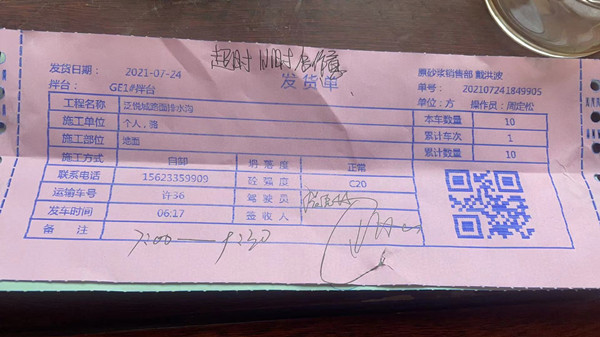 超时1小时
发货单
发货日期： 2021-07-24
原砂浆销售部 戴洪波
拌台： GE1#拌台
单号： 202107241849905
单位：方 操作员：周定松
工程名称 泛悦城路面排水沟 本车数量 10
施工单位 个人，骆 累计车次 1
施工部位 地面 累计数量 10
施工方式 自卸 坍落度 正常
联系电话 15623359909 砼强度 C20
运输车号 许36 驾驶员
发车时间 06:17 签收人
备注 7:00——9:30